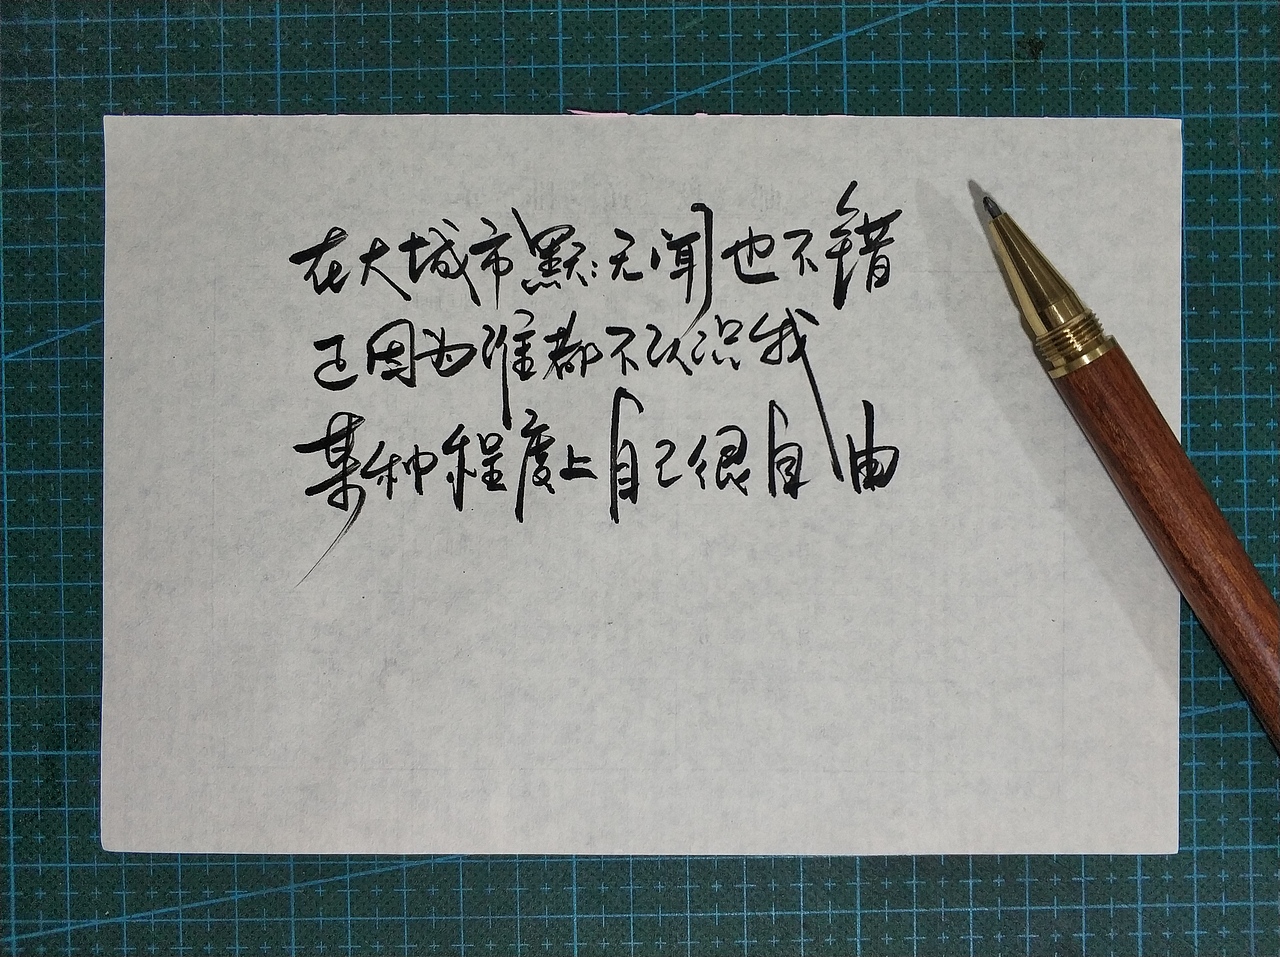 在大城市默默无闻也不错
正因为谁都不认识我
某种程度上自己很自由